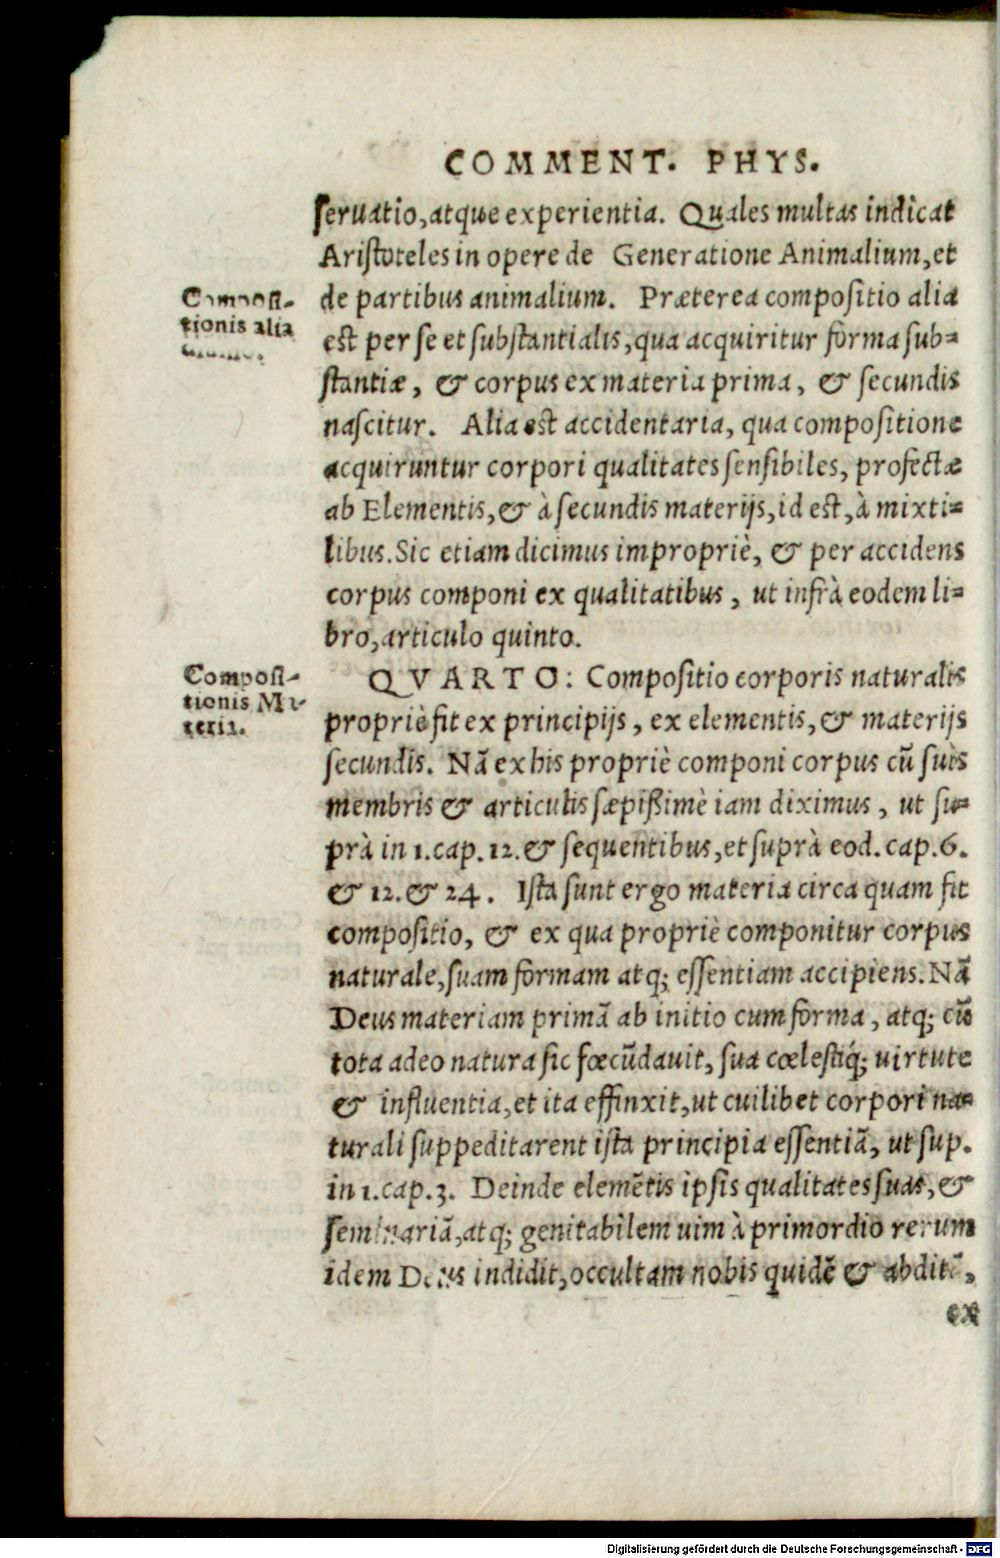 COMMENT. PHYS.
seruatio, atque experientia. Quales multas indicat
Aristoteles in opere de Generatione Animalium, et
de partibus animalium. Præterea compositio alia
est per se et substantialis, qua acquiritur forma sub=
stantiæ, & corpus ex materia prima, & secundis
nascitur. Alia est accidentaria, qua compositione
acquiruntur corpori qualitates sensibiles, profectæ
ab Elementis, & à secundis materijs, id est, à mixti=
libus. Sic etiam dicimus impropriè, & per accidens
corpus componi ex qualitatibus, ut infrà eodem li=
bro, articulo quinto.
Compositi-
tionis alia
QVARTO: Compositio corporis naturalis
propriè fit ex principijs, ex elementis, & materijs
secundis. Nã ex his propriè componi corpus cũ suis
membris & articulis sæpissimè iam diximus, ut su=
prà in 1. cap. 12. & sequentibus, et suprà eod. cap. 6.
& 12. & 24. Ista sunt ergo materia circa quam fit
compositio, & ex qua propriè componitur corpus
naturale, suam formam atq; essentiam accipiens. Nã
Deus materiam primã ab initio cum forma, atq; cũ
tota adeo natura sic fœcũdauit, sua cœlestiq́; uirtute
& influentia, et ita effinxit, ut cuilibet corpori na=
turali suppeditarent ista principia essentiã, ut sup.
in 1. cap. 3. Deinde elemẽtis ipsis qualitates suas, &
seminariã, atq; genitabilem uim à primordio rerum
idem Deus indidit, occultam nobis quidẽ & abditã,
ex
Composi-
tionis Ma
teria.
Digitalisierung gefördert durch die Deutsche Forschungsgemeinschaft - DFG